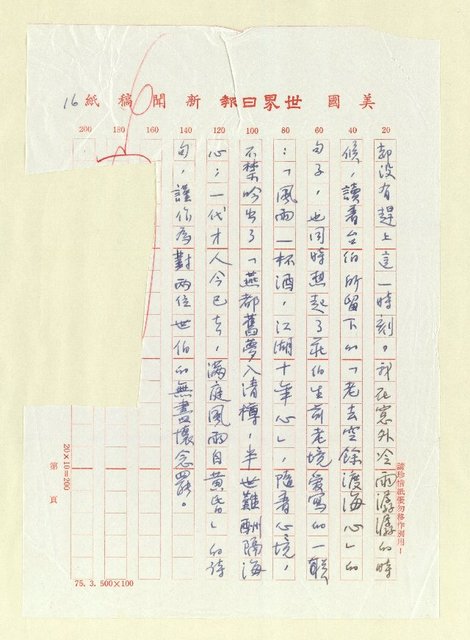 美國世界日報新聞稿紙 16
20
40
60
80
100
120
140
160
180
200
都没有趕上這一時刻。我在窓外冷雨潺潺的時
候,讀着台伯所留下的「老去空餘渡海心」的
句子,也同時想起了莊伯生前老境愛寫的一聯
:「風雨一杯酒,江湖十年心」,隨着心境,
不禁吟出了「燕都舊夢入清樽,半世難酬隔海
心;一代才人今已去,滿庭風雨自黃昏」的詩
句,謹作為對兩位世伯的無盡懷念罷。
請珍惜紙張勿移作別用!
20×10=200
第 頁
75.3.500×100